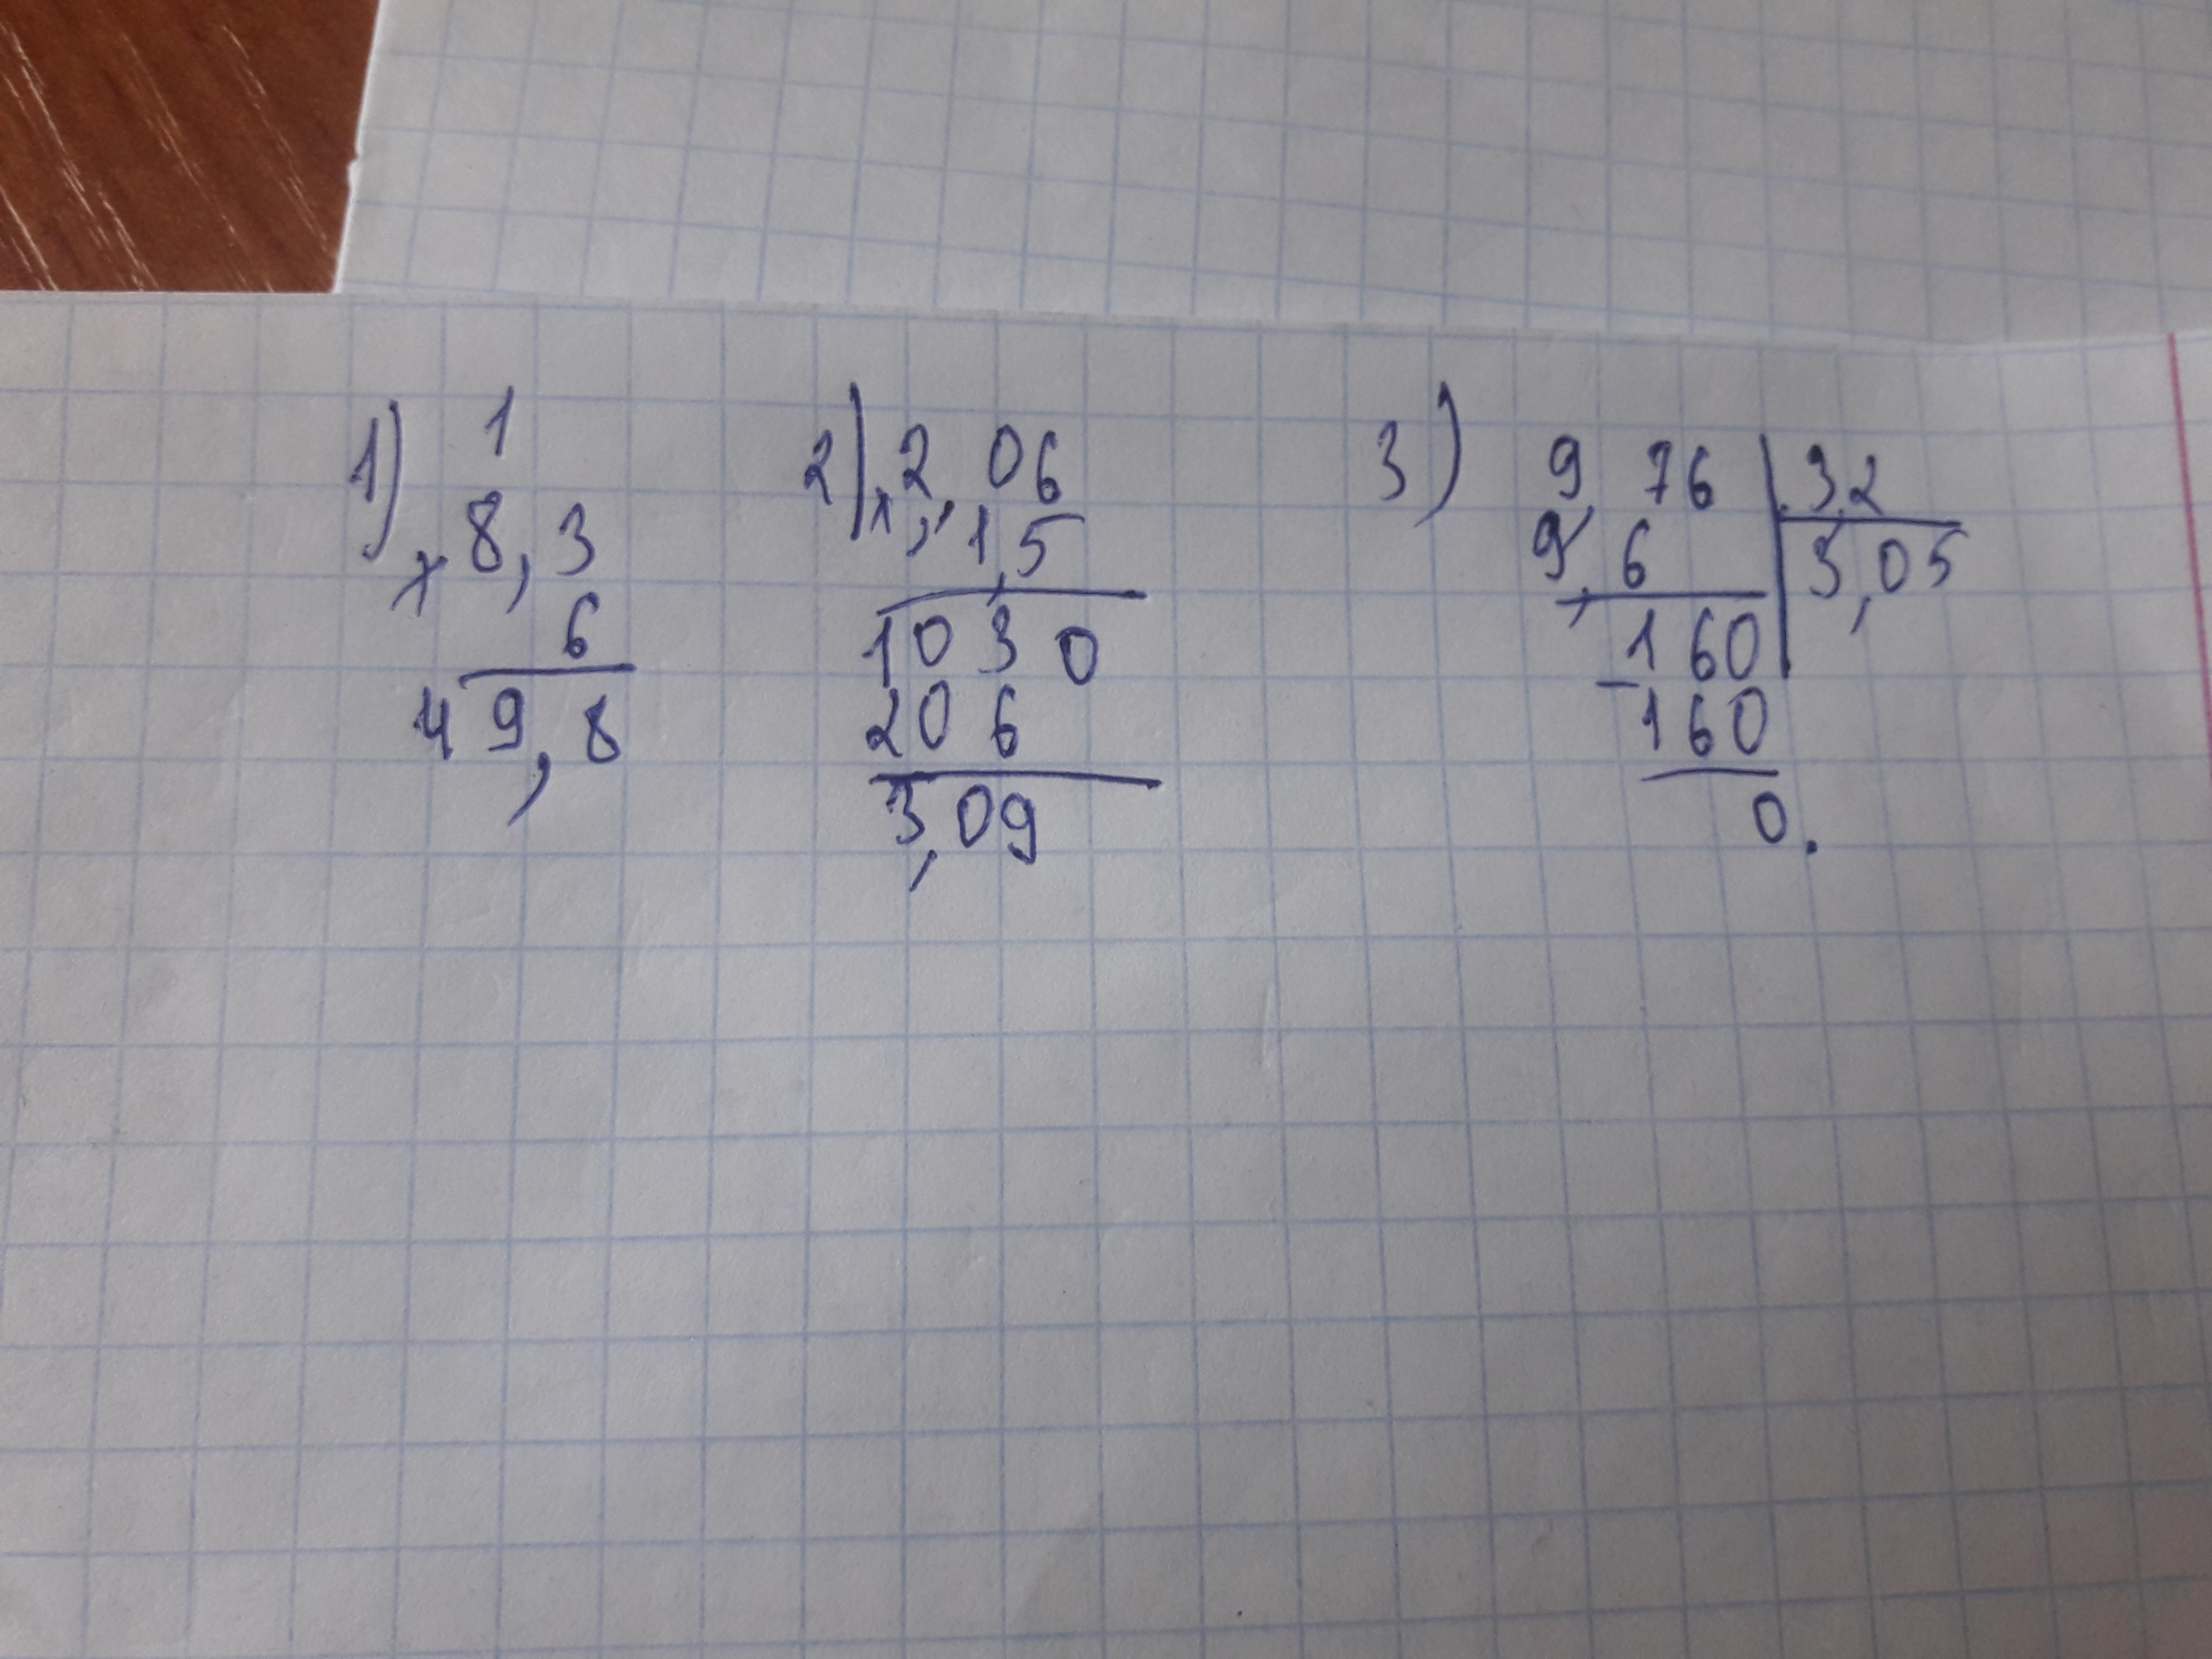 1)
1
× 8,3
6
49,8
2)
× 2,06
1,5
1030
206
3,09
3)
9,76 | 3,2
9,6 | 3,05
160
- 160
0.